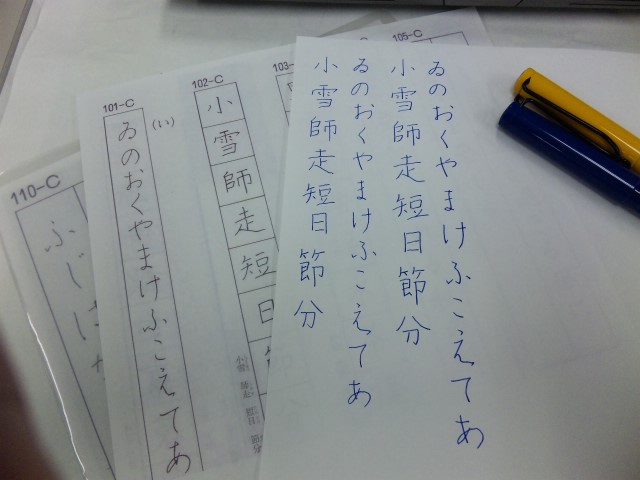 ゐのおくやまけふこえてあ
小雪師走短日節分
ゐのおくやまけふこえてあ
小雪師走短日節分
105-C
103-
102-C
小雪師走短日
101-C
(い)
ゐのおくやまけふこえてあ
110-C
ふじは